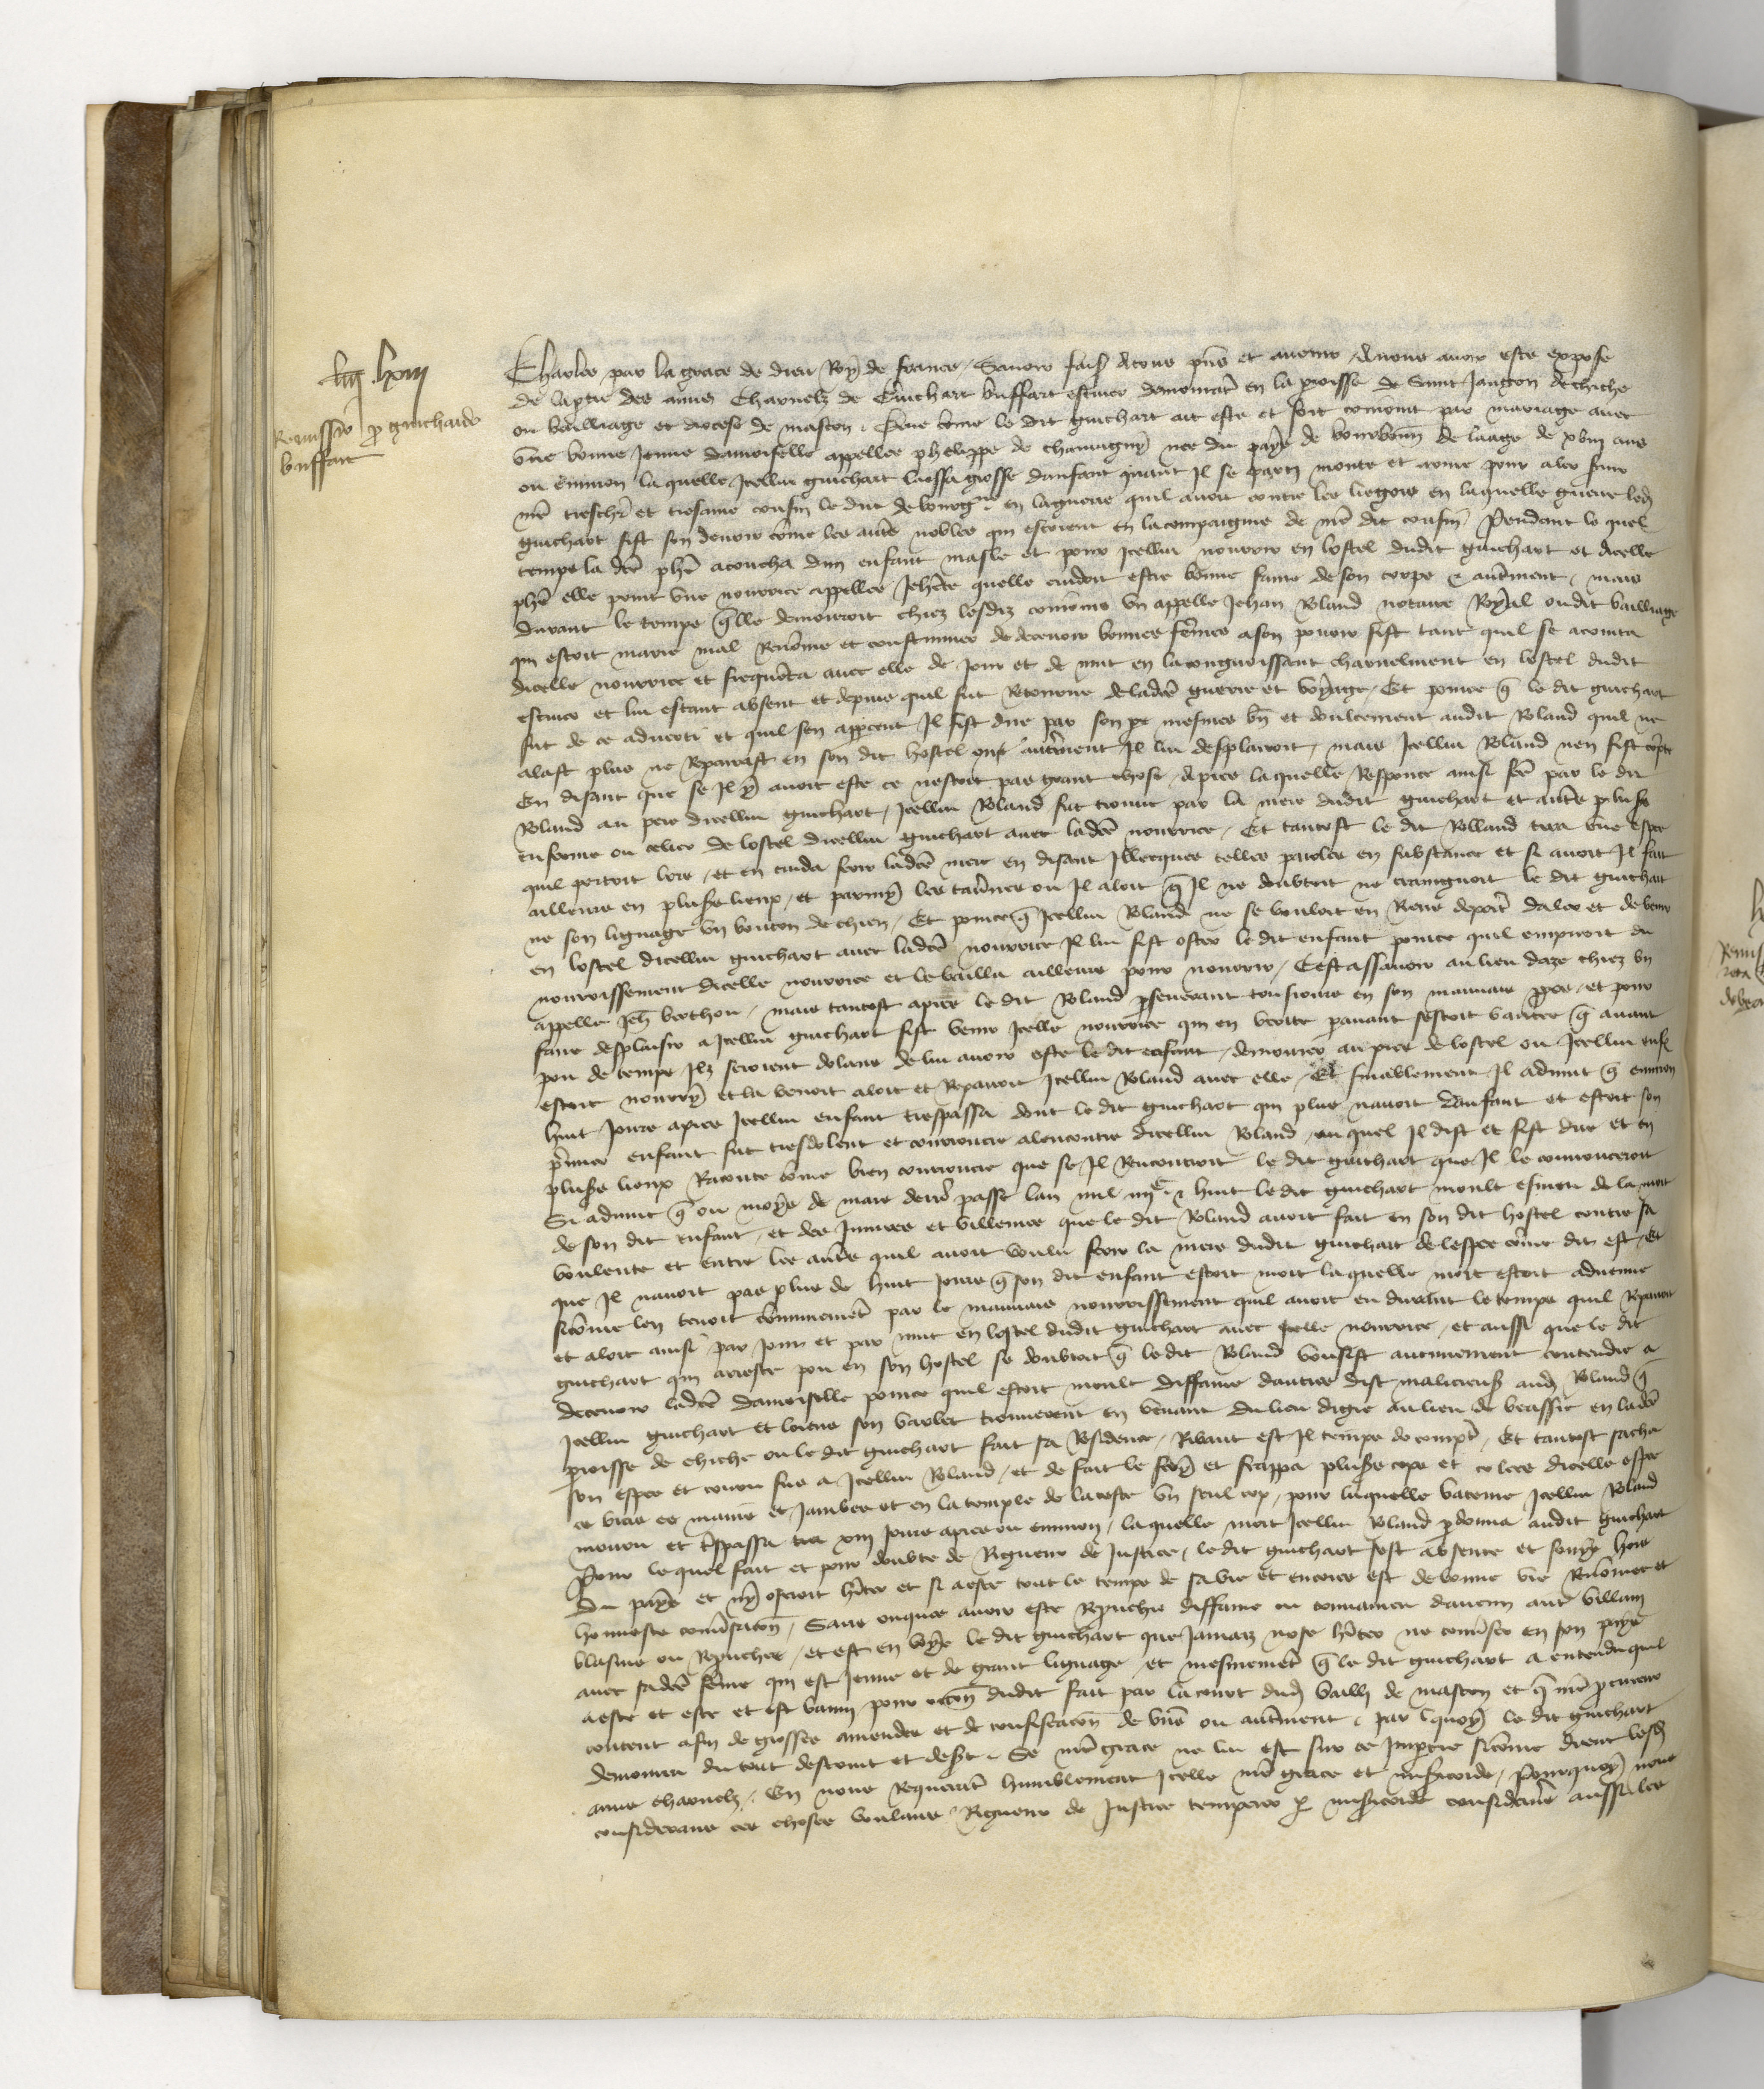 iiii^xx xiii
Remissio pro guichardo
buffart
Charles par la grace de dieu Roy de france Savoir faisons atous presens et avenir Anous avoir este expose
de la partie des amis Charnelz de Guichart buffart escuier demourant en la parroisse de Saint de chiche
ou bailliage et diocese de mascon Que come le dit guichart ait este et soit conjoint par mariage avec
une bonne jeune damoiselle appellee phelippe de chauvigny nee du pays de bourbonnois de laage de xviii ans
ou environ la quelle Icellui guichart laissa grosse denfant quant Il se parti monte et arme pour aler servir
nre treschier et tresame cousin le duc de bourgne en la guerre quil avoit contre les liegois en laquelle guerre ledit
guichart fist son devoir come les autres nobles qui estoient en la compaignie de nre dit cousin Pendant le quel
temps la dce phe acoucha dun enfant masle et pour Icellui nourrir en lostel dudit guichart et dicelle
phe elle print une nourrice appellee Jehanne quelle cuidoit estre bonne fame de son corps et autrement mais
durant le temps quelle demouroit chiez lesdiz conjoins un appelle Jehan Roland notaire Royal oudit bailliage
qui estoit marie mal Renome et coustumier de decevoir bonnes femmes a son povoir fist tant quil se acointa
dicelle nourrice et frequenta avec elle de jour et de nuit en la congnoissant charnelment en lostel dudit
escuier et lui estant absent et depuis quil fut Retourne de ladce guerre et voyage Et pource que le dit guichart
fut de ce adverti et quil sen apperceut Il fist dire par son pere mesmes bien et doulcement audit Roland quil ne
alast plus ne Repairast en son dit hostel ou autrement Il lui desplairoit mais Icellui Roland nen fist compte
En disant que se Il y avoit este ce nestoit pas grant chose Apres laquelle Response ainsi fce par le dit
Roland au pere dicellui guichart Icellui Roland fut trouve par la mere dudit guichart et autres pluss
enferme ou celier de lostel dicellui guichart avec ladce nourrice Et tantost le dit Rolland tira une espee
quil portoit lors et en cuida ferir ladce mere en disant Illecques telles paroles en substance et si avoit Il fait
ailleurs en pluss lieux et parmy les tavernes ou Il aloit que Il ne doubtoit ne craingnoit le dit guichart
ne son lignage un bouton de chien Et pource que Icellui Roland ne se vouloit en Riens deporter daler et de venir
en lostel dicellui guichart avec ladce nourrice Il lui fist oster le dit enfant pource quil empiroit du
nourrissement dicelle nourrice et le bailla ailleurs pour nourrir Cest assavoir au lieu daze chiez un
appelle Jeh berthon mais tantost apres le dit Roland perseverant tousjours en son mauvais propos et pour
faire desplaisir a Icellui guichart fist venir Icelle nourrice qui en verite paravant sestoit vantee que avant
pou de temps Ilz seroient dolans de lui avoir oste le dit enfant demourer au pres de lostel ou Icellui enfant
estoit nourry et la venoit aloit et Repairoit Icellui Roland avec elle Et finablement Il advint que environ
huit jours apres Icellui enfant trespassa dont le dit guichart qui plus navoit denfant et estoit son
premier enfant fut tresdolent et courroucie alencontre dicellui Roland au quel Il dist et fist dire et en
pluss lieux Raconta come bien courroucie que se Il Rencontroit le dit guichart que Il le courrouceroit
Si advint que ou moys de mars derrenier passe lan mil iiii^c et huit le dit guichart moult esmeu de la mort
de son dit enfant et des Injures et villenies que le dit Roland avoit fait en son dit hostel contre sa
voulente et entre les autres quil avoit voulu ferir la mere dudit guichart de lespee come dit est Et
que Il navoit pas plus de huit jours que son dit enfant estoit mort laquelle mort estoit advenue
sicome len tenoit communement par le mauvais nourrissement quil avoit eu durant le temps quil Repairoit
et aloit ainsi par jour et par nuit en lostel dudit guichart avec Icelle nourrice et aussi que le dit
guichart qui arreste pou en son hostel se doubtoit que le dit Roland voulsist aucunement contendre a
decevoir ladce damoiselle pource quil estoit moult diffame dautres dist malicieuss audit Roland que
Icellui guichart et son varlet trouverent en venant du lieu digie au lieu de en ladce
parroisse de chiche ou le dit guichart fait sa Residence avant est Il temps de compter Et tantost sacha
son espee et courut sus a Icellui Roland et de fait le fery et frappa pluss cops et colees dicelle espee
es bras es mains et jambes et en la temple de la teste un seul cop pour laquelle bateure Icellui Roland
mouru et trespassa xiii jours apres ou environ laquelle mort Icellui Roland perdonna audit guichart
Pour lequel fait et pour doubte de Rigueur de Justice le dit guichart sest absente et fouy hors
du pays et ny oseroit hanter et si a este tout le temps de sa vie et encores est de bonne vie Renomee et
honneste conversacion Sans onques avoir este Reprochie diffame ou convaincu daucun autre villain
blasme ou Reprouche et est en voye le dit guichart que jamaiz nose hanter ne converser en son pays
avec sadce femme qui est jeune et de grant lignage et mesmement que le dit guichart a entendu quil
a este et est banni pour occasion dudit fait par la court dudit bailli de mascon et que nre procureur
content afin de grosses amendes et de confiscacion de biens ou autrement par lequoy le dit guichart
demourra du tout destruit et desert Se nre grace ne lui est sur ce Impartie sicome dient lesdiz
amis charnelz En nous Requerant humblement Icelle nre grace et misericorde Pourquoy nous
considerans ces choses voulans Rigueur de Justice temperer par misericorde consideranz aussi les